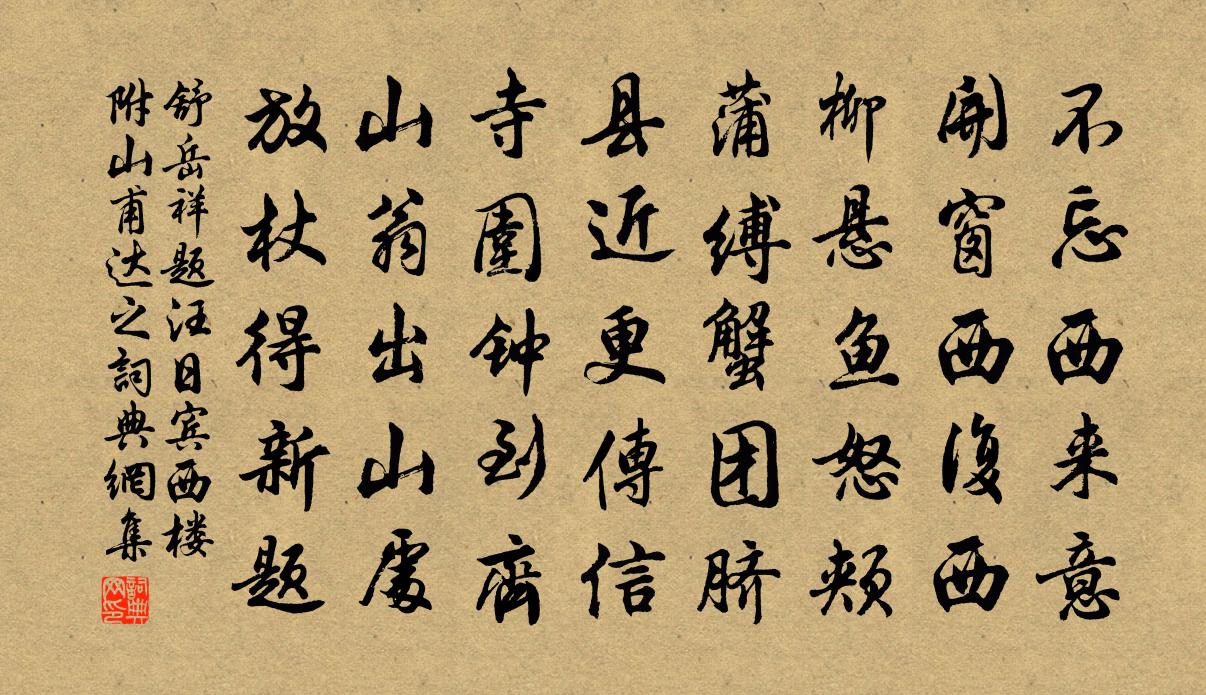 不忘西来意
開窗西復西
柳悬鱼怒颊
蒲缚蟹团脐
县近更傳信
寺圍钟到齊
山翁出山處
放杖得新题
舒岳祥题汪日宾西楼
附山甫达之詞典網集
詞典网印